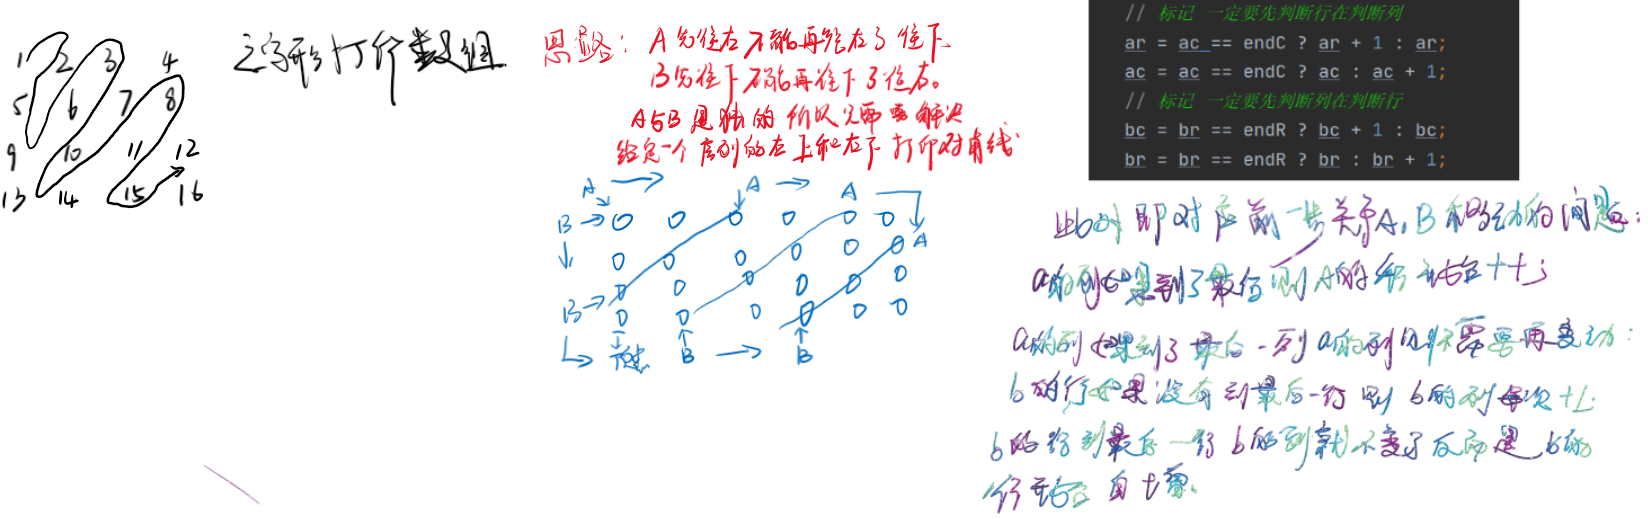 1 2 3 4
5 6 7 8
9 10 11 12
13 14 15 16
之字形打印数组
思路： A先往右 不能再往右了 往下
B先往下 不能再往下了 往右。
A与B是独的 所以只需要解决
给定一个序列的右上和左下打印对角线
A A A
B
A
B
B B
// 标记 一定要先判断行在判断列
ar = ac == endC ? ar + 1 : ar;
ac = ac == endC ? ac : ac + 1;
// 标记 一定要先判断列在判断行
bc = br == endR ? bc + 1 : bc;
br = br == endR ? br : br + 1;
此时即对应前一步关于A，B移动的问题：
a的列如果到了最后 则A的行开始++；
a的列如果到了最后一列a的列就不需要再变动：
b的行如果没有到最后一行则b的列每次+1.
b的行到最后一行b的列就不变了反而是b的
行开始自增。